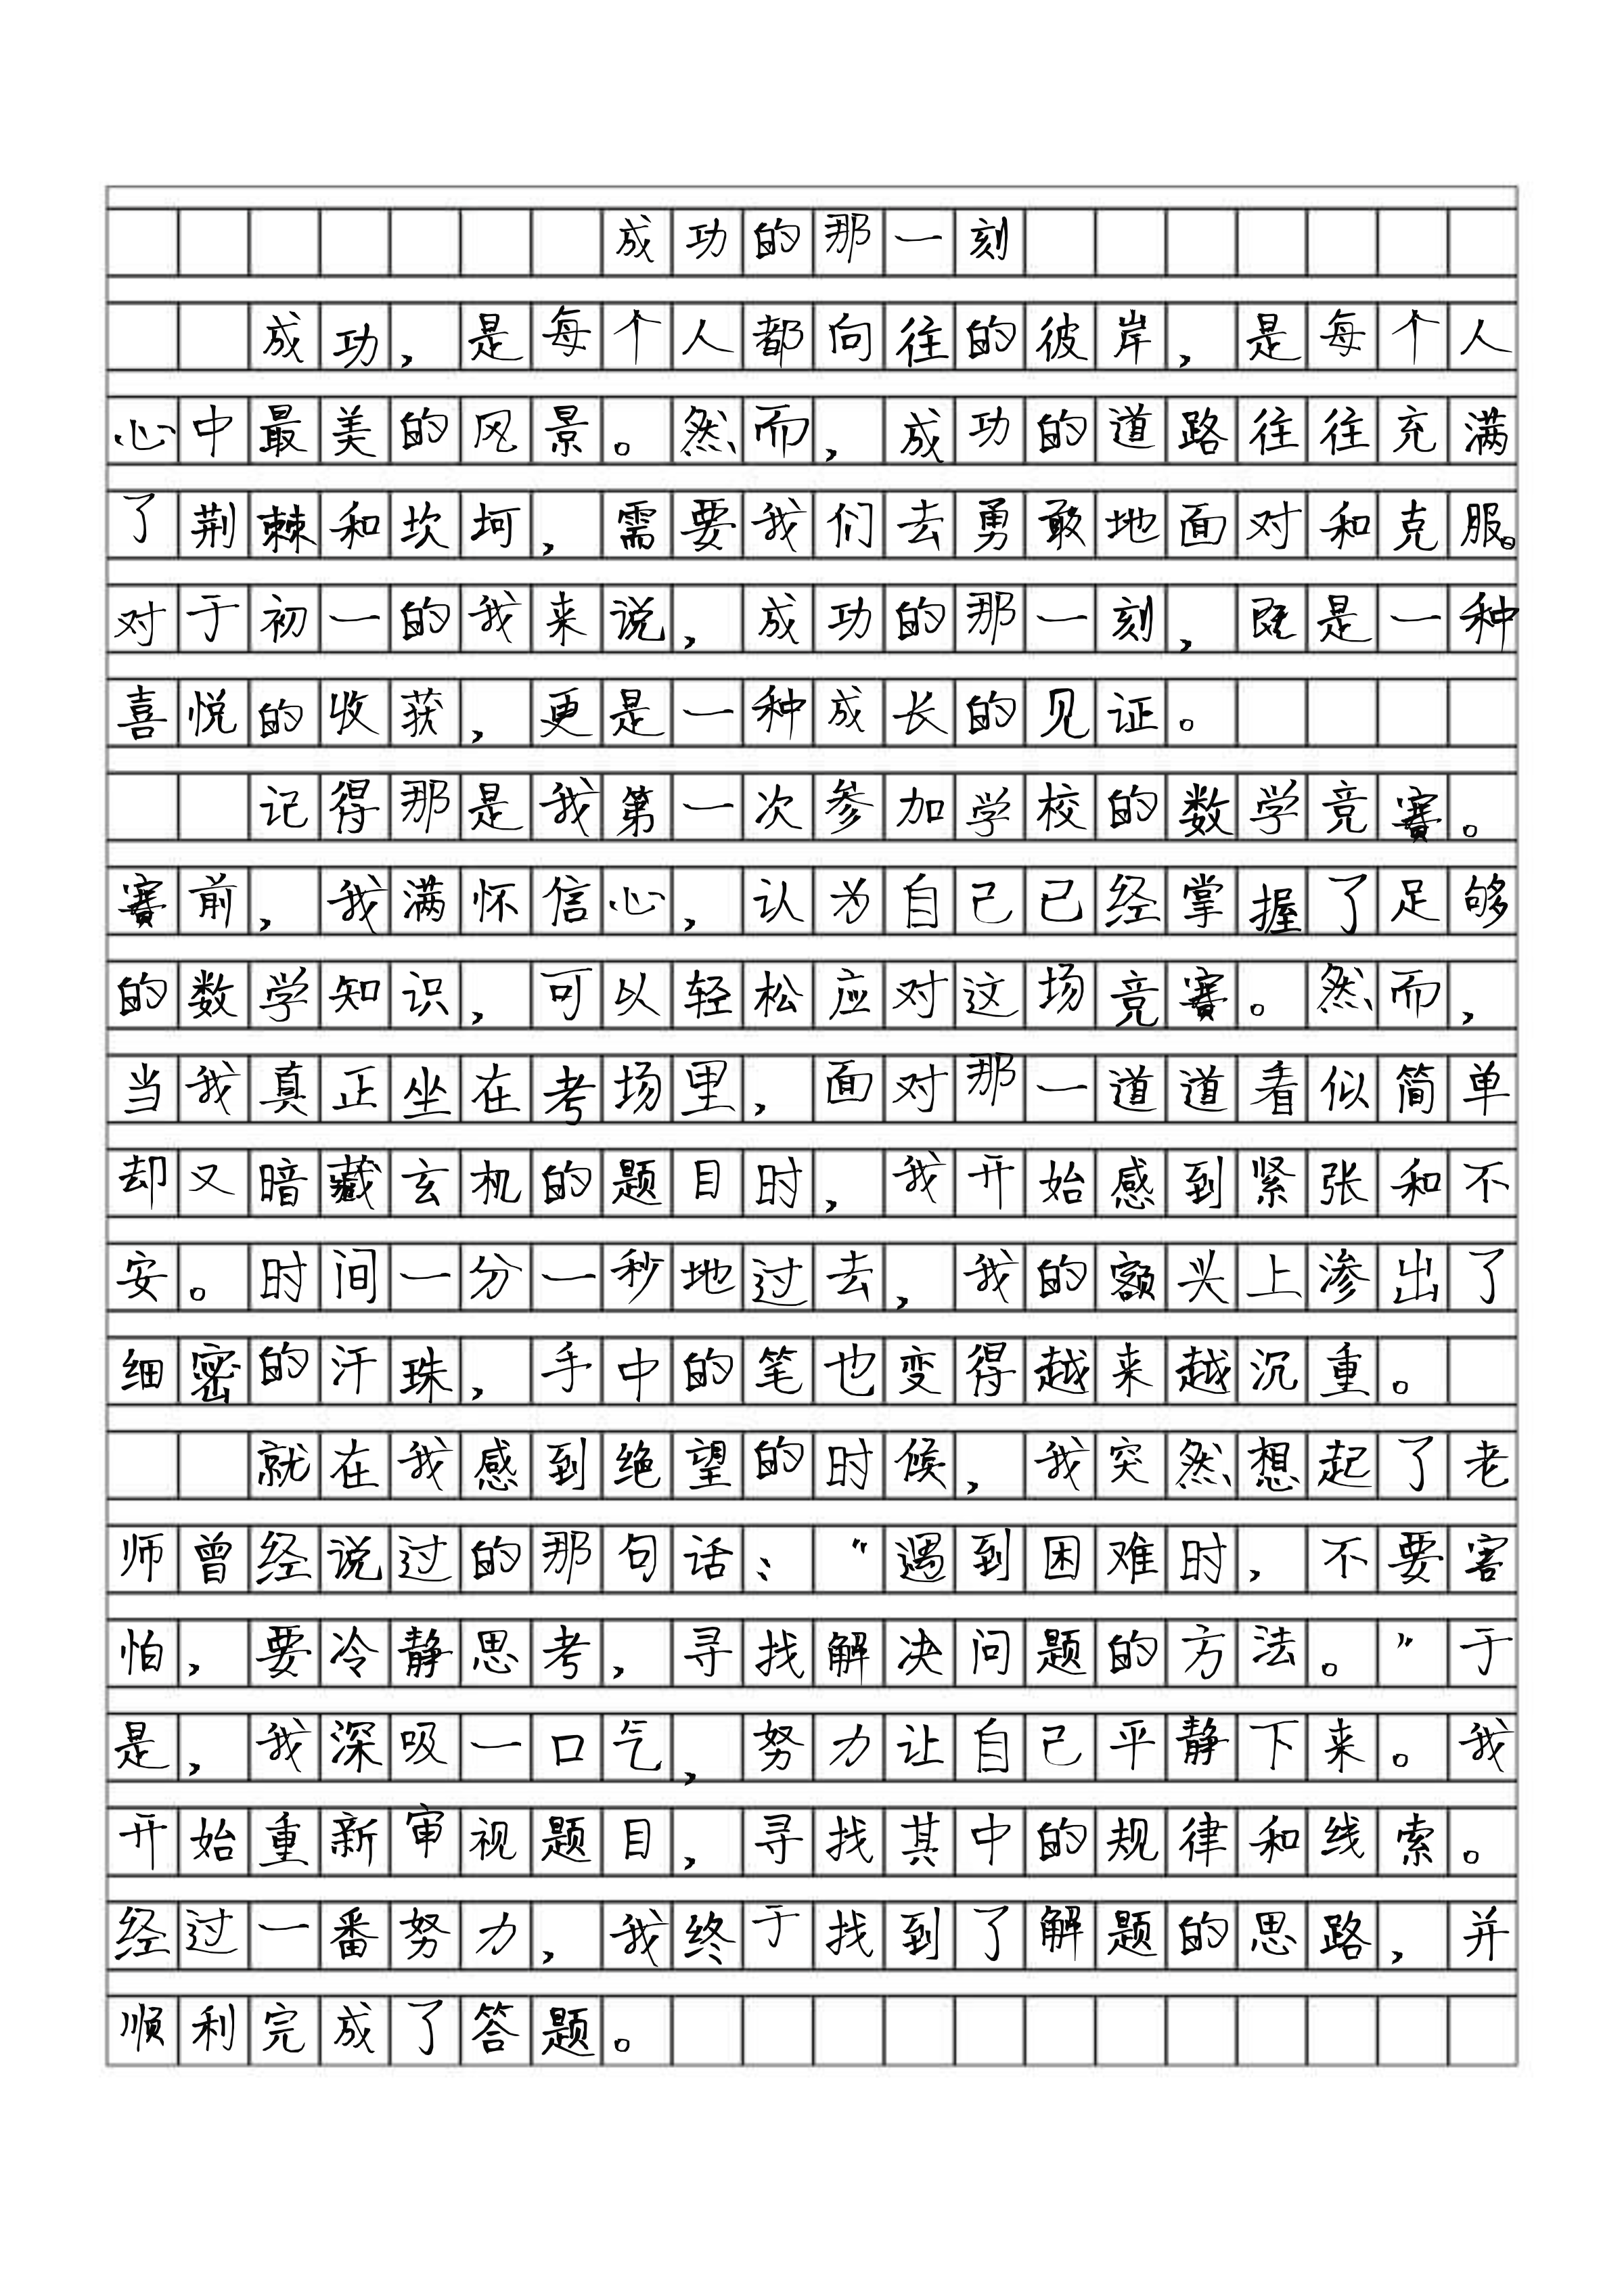 成功的那一刻
成功，是每个人都向往的彼岸，是每个人
心中最美的风景。然而，成功的道路往往充满
了荆棘和坎坷，需要我们去勇敢地面对和克服。
对于初一的我来说，成功的那一刻，既是一种
喜悦的收获，更是一种成长的见证。
记得那是我第一次参加学校的数学竞赛。
赛前，我满怀信心，认为自己已经掌握了足够
的数学知识，可以轻松应对这场竞赛。然而，
当我真正坐在考场里，面对那一道道看似简单
却又暗藏玄机的题目时，我开始感到紧张和不
安。时间一分一秒地过去，我的额头上渗出了
细密的汗珠，手中的笔也变得越来越沉重。
就在我感到绝望的时候，我突然想起了老
师曾经说过的那句话：“遇到困难时，不要害
怕，要冷静思考，寻找解决问题的方法。”于
是，我深吸一口气，努力让自己平静下来。我
开始重新审视题目，寻找其中的规律和线索。
经过一番努力，我终于找到了解题的思路，并
顺利完成了答题。